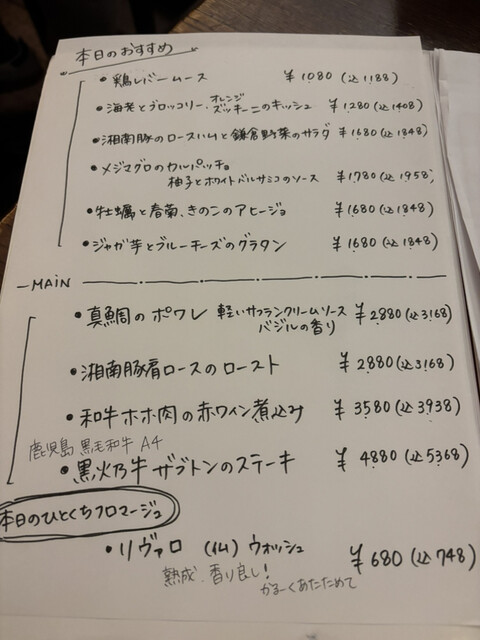 本日のおすすめ
・鶏レバームース ¥1080(込1188)
・海老とブロッコリー、オレンジズッキーニのキッシュ ¥1280(込1408)
・湘南豚のロースハムと鎌倉野菜のサラダ ¥1680(込1848)
・メジマグロのカルパッチョ
柚子とホワイトバルサミコのソース ¥1780(込1958)
・牡蠣と春菊、きのこのアヒージョ ¥1680(込1848)
・ジャガ芋とブルーチーズのグラタン ¥1680(込1848)
—MAIN
・真鯛のポワレ 軽いサフランクリームソース ¥2880(込3168)
バジルの香り
・湘南豚肩ロースのロースト ¥2880(込3168)
・和牛ホホ肉の赤ワイン煮込み ¥3580(込3938)
鹿児島 黒毛和牛 A4
・黒火乃牛ザブトンのステーキ ¥4880(込5368)
本日のひとくちフロマージュ
・リヴァロ (仏) ウォッシュ ¥680(込748)
熟成、香り良し!
かるーくあたためて